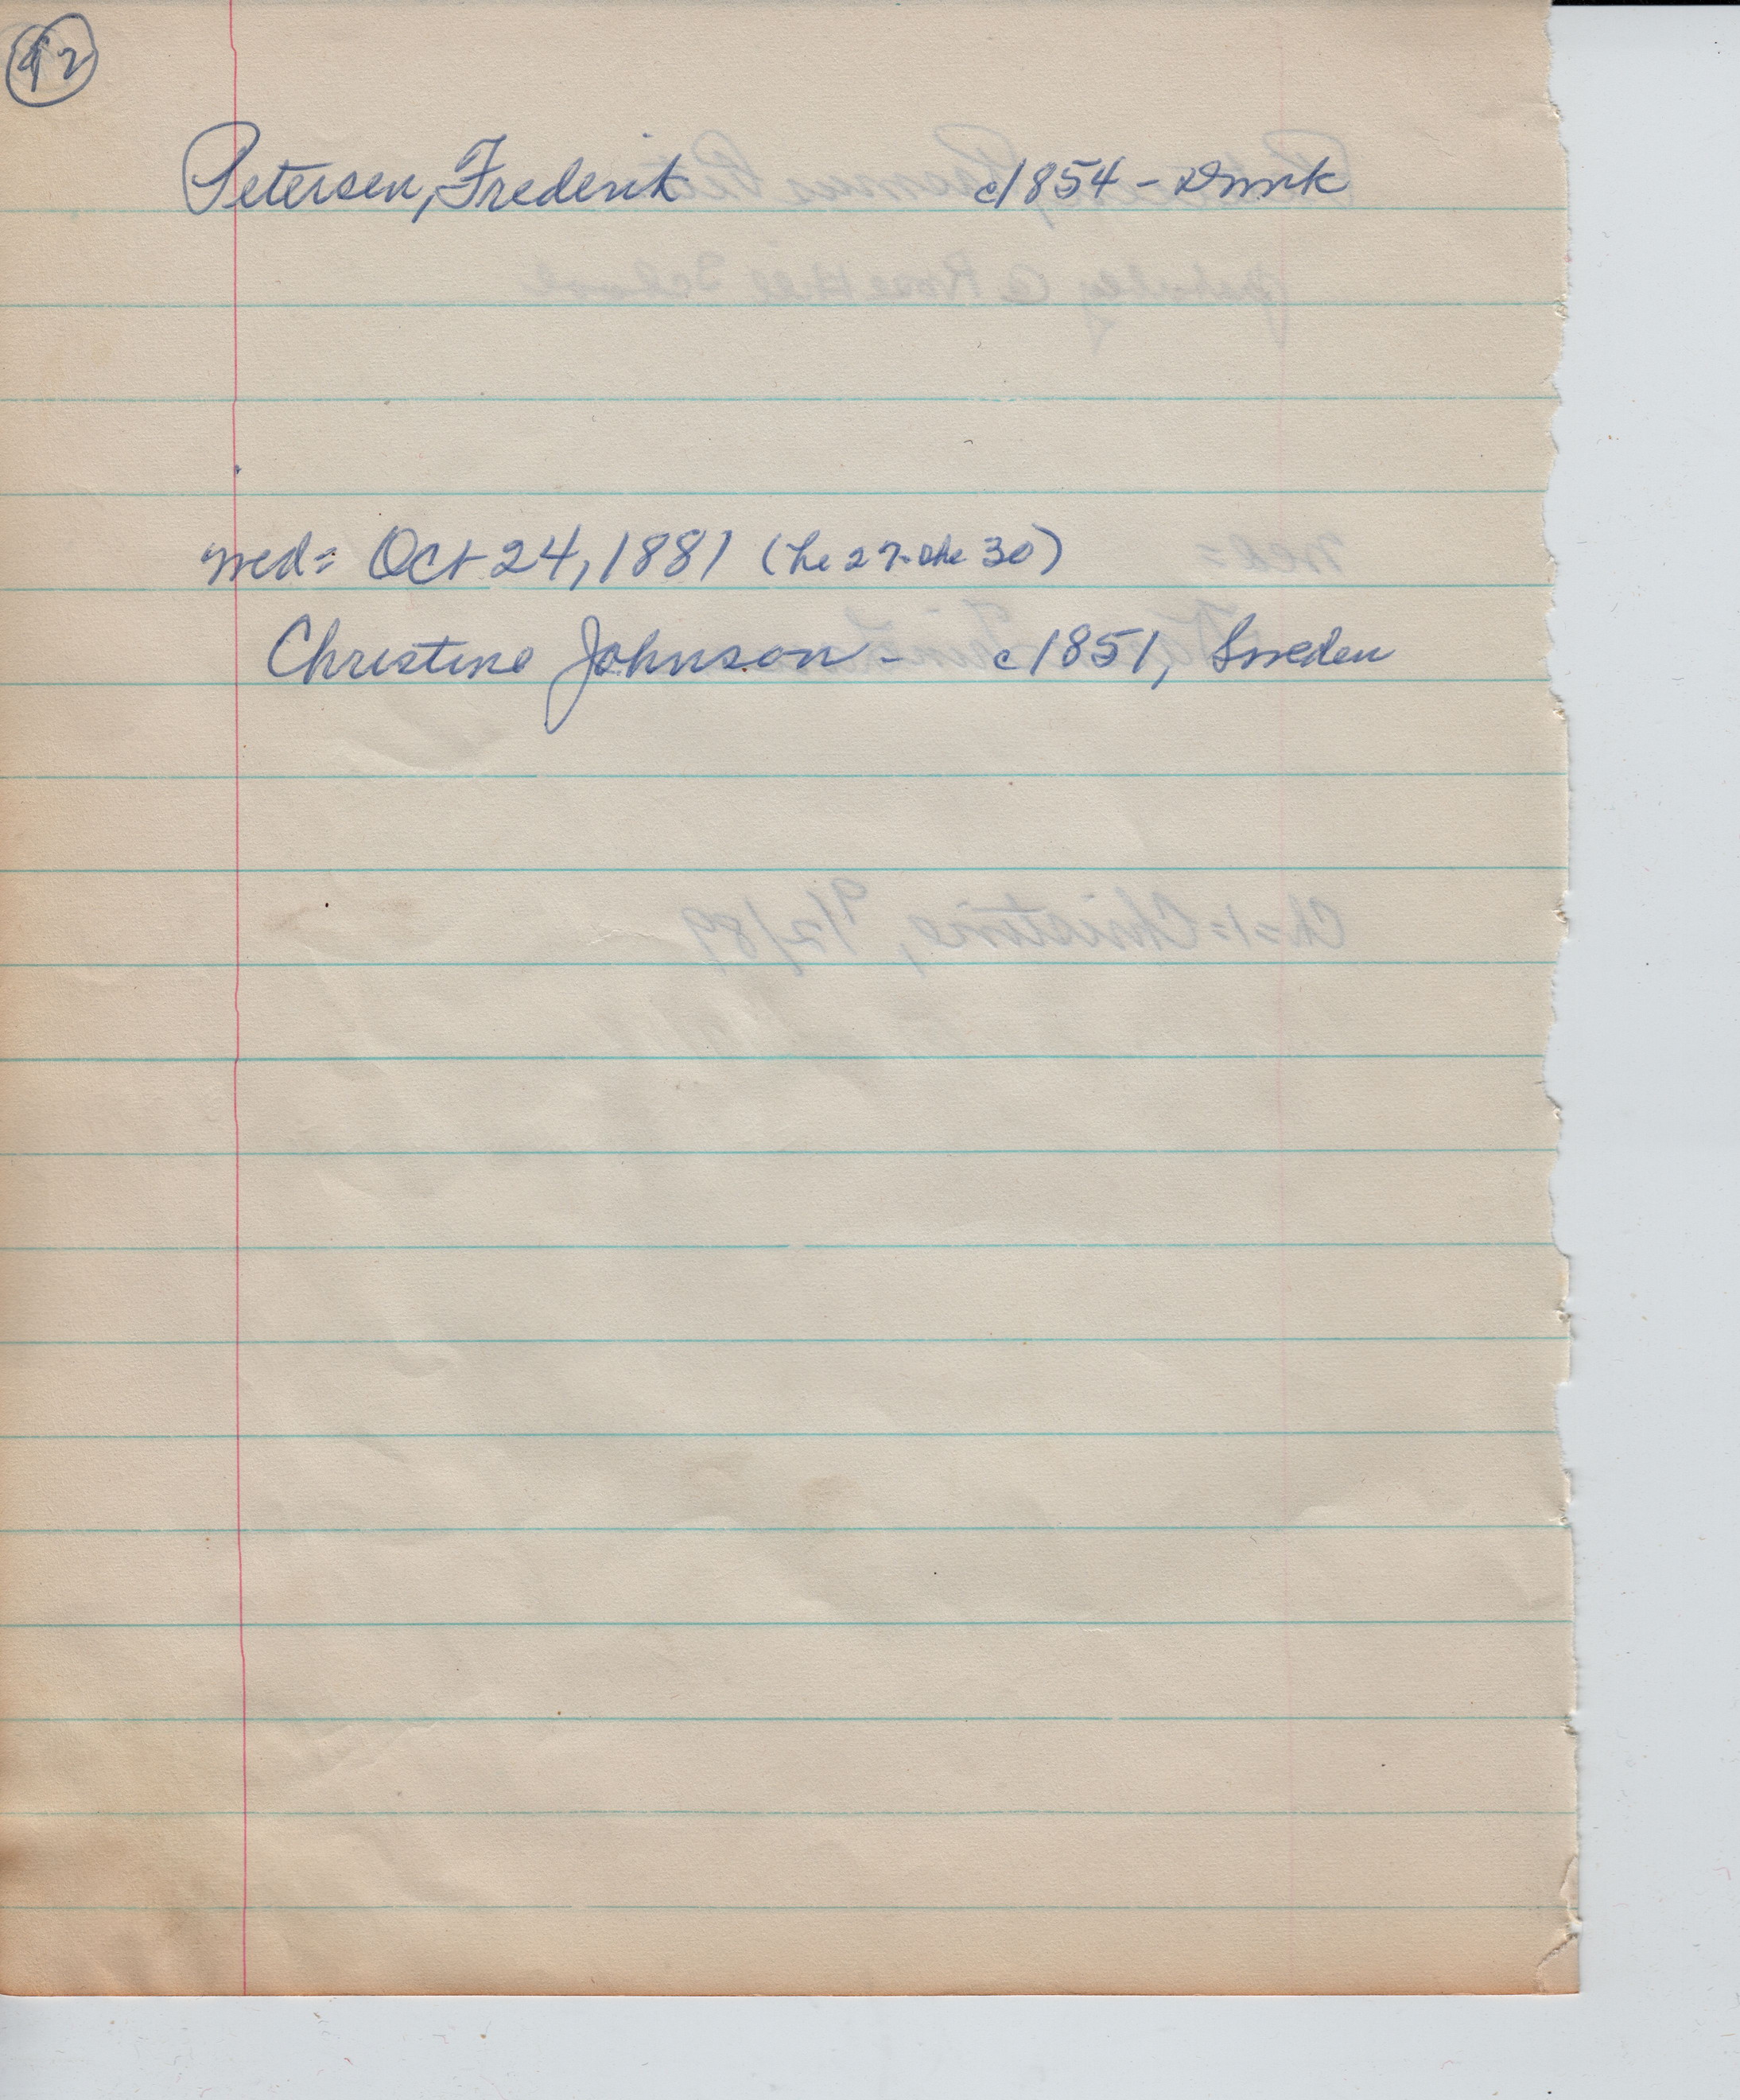 92
Petersen, Frederik c1854 - Dnmk
wed= Oct 24, 1881 (he 27-she 30)
Christine Johnson - c1851, Sweden